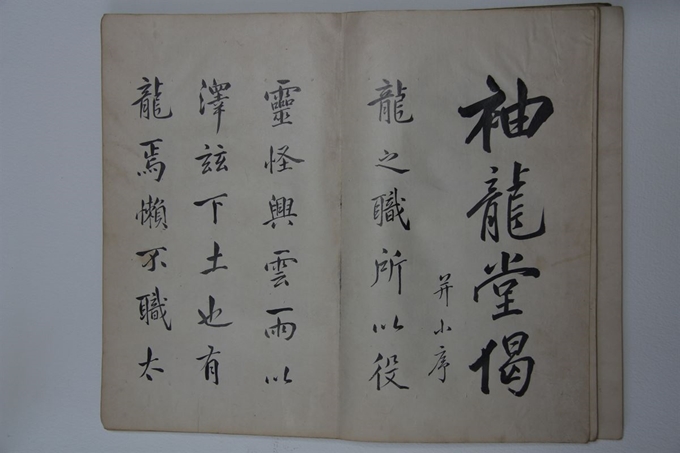 袖龍堂偈
并小序
龍之職所以役
靈怪興雲雨以
澤玆下土也有
龍焉懶不職太